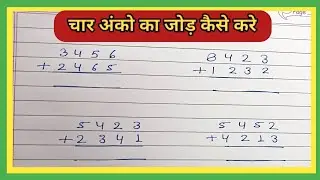 चार अंको का जोड़ कैसे करे
3456
+2465
8423
+1232
5423
+2341
5452
+4213